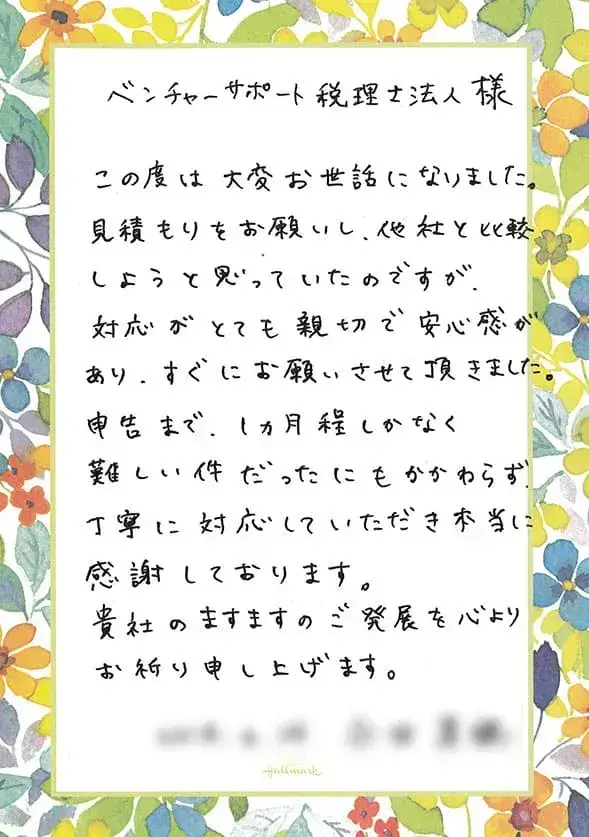 ベンチャーサポート税理士法人様
この度は大変お世話になりました。
見積もりをお願いし、他社と比較
しようと思っていたのですが、
対応がとても親切で安心感が
あり、すぐにお願いさせて頂きました。
申告まで、1カ月程しかなく
難しい件だったにもかかわらず、
丁寧に対応していただき本当に
感謝しております。
貴社のますますのご発展を心より
お祈り申し上げます。
Hallmark